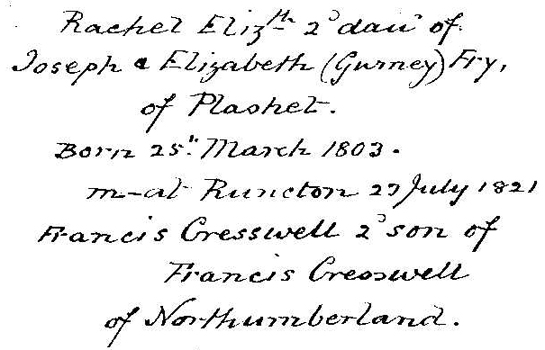 Rachel Eliz.th 2d dau of
Joseph & Elizabeth (Gurney) Fry,
of Plashet.
Born 25th March 1803.
m-at Runcton 27 July 1821
Francis Cresswell 2d son of
Francis Cresswell
of Northumberland.